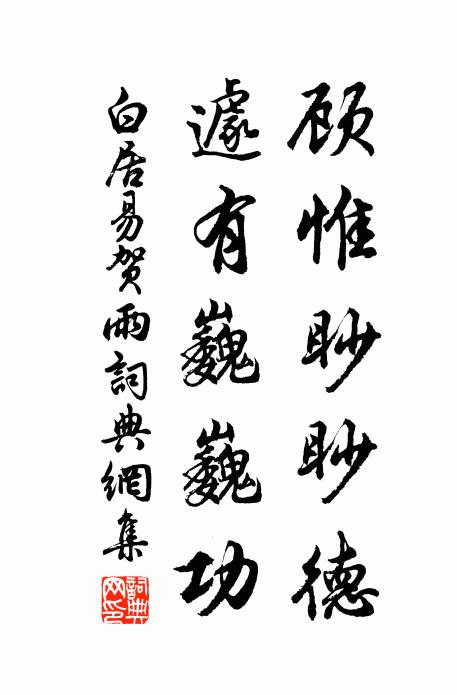 顾惟眇眇德
遽有巍巍功
白居易贺雨詞典網集
詞典网印